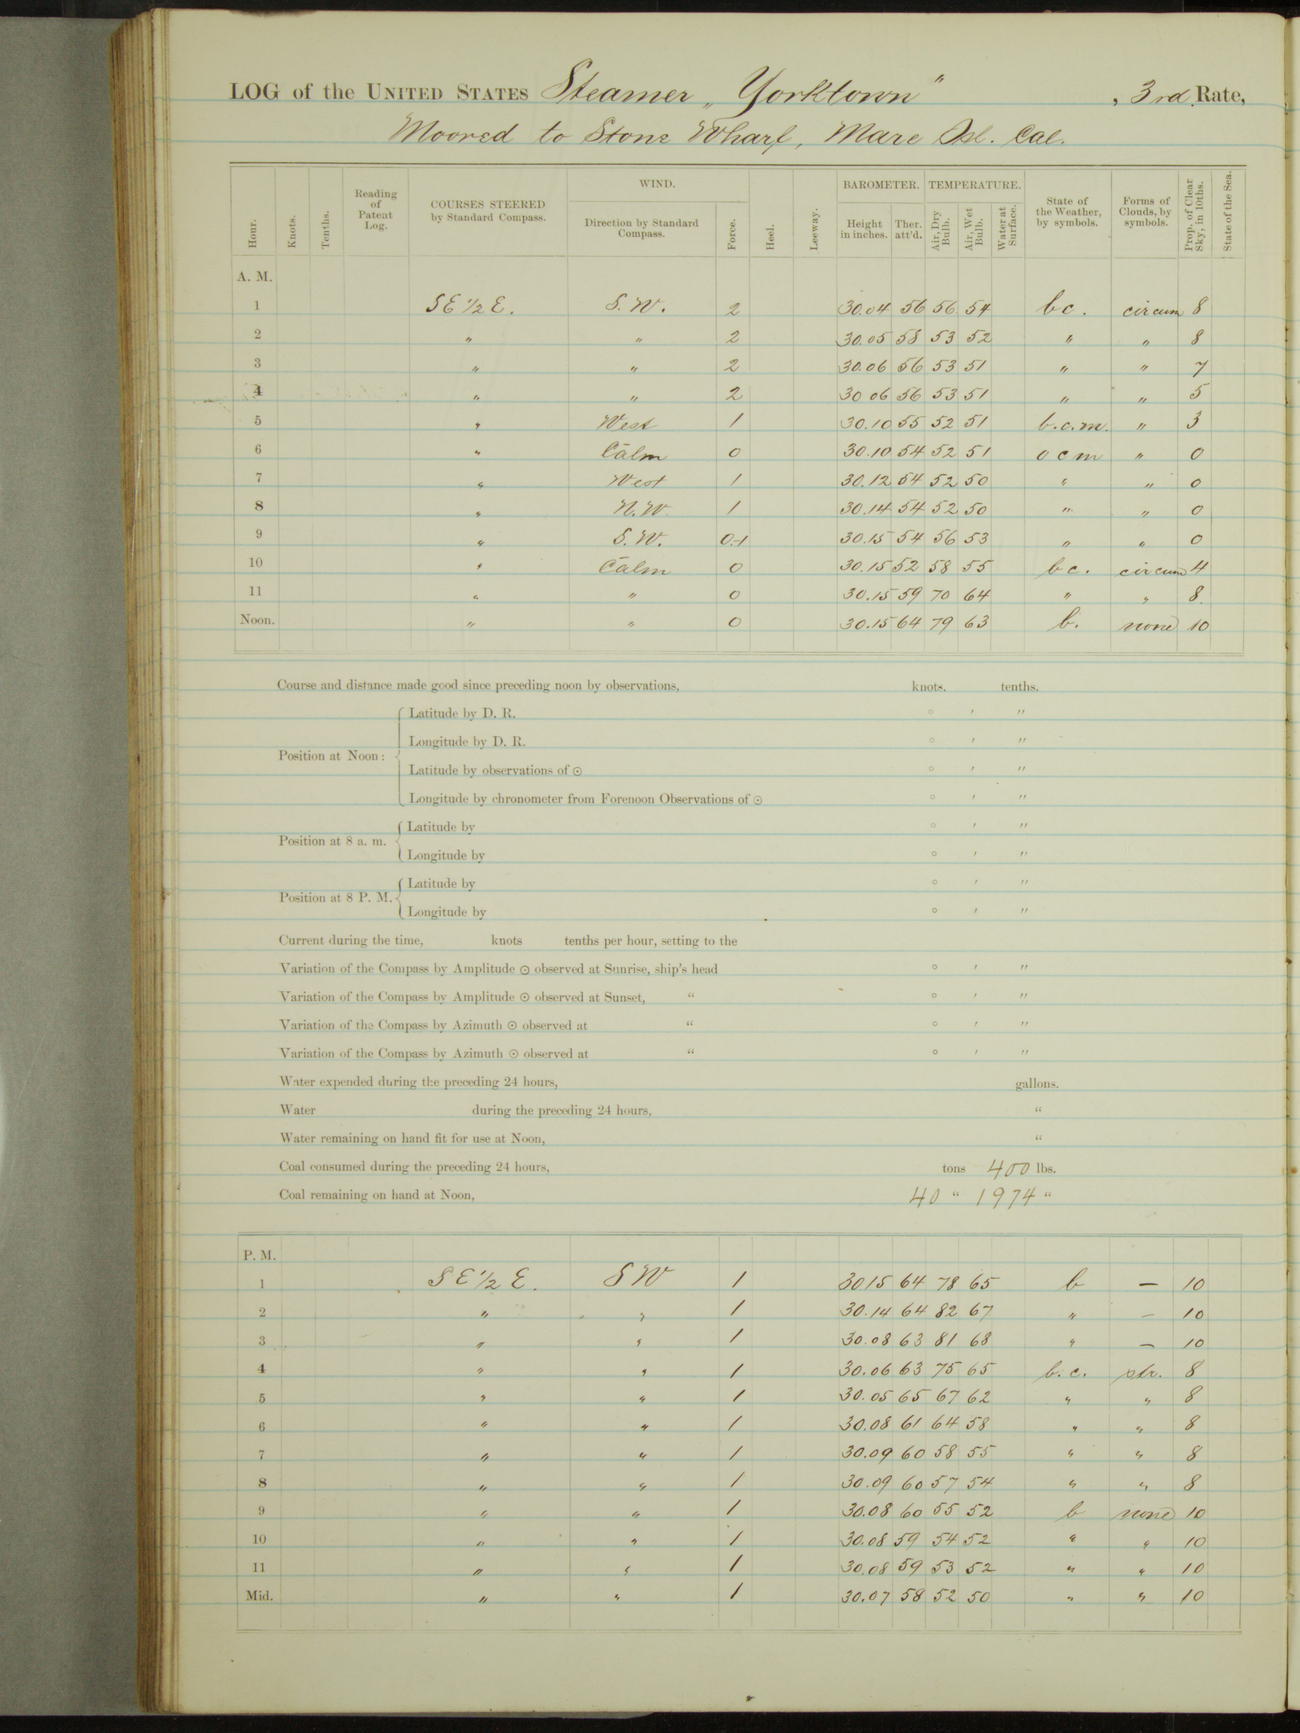 LOG of the UNITED STATES Steamer „Yorktown", 3rd Rate,
Moored to Stone Wharf, Mare Isl. Cal.
Hour. Knots. Tenths. Reading of Patent Log. COURSES STEERED by Standard Compass. WIND. Direction by Standard Compass. Force. Heel. Leeway. BAROMETER. Height in inches. Ther. att'd. TEMPERATURE. Air, Dry Bulb. Air, Wet Bulb. Water at Surface. State of the Weather, by symbols. Forms of Clouds, by symbols. Prop. of Clear Sky, in 10ths. State of the Sea.
A. M.
1 SE 1/2 E. S. W. 2 30.04 56 56 54 bc. circum 8
2 " " 2 30.05 58 53 52 " " 8
3 " " 2 30.06 56 53 51 " " 7
4 " " 2 30 06 56 53 51 " " 5
5 " West 1 30.10 55 52 51 b.c.m. " 3
6 " Calm 0 30.10 54 52 51 o c m " 0
7 " West 1 30.12 54 52 50 " " 0
8 " N.W. 1 30.14 54 52 50 " " 0
9 " S.W. 0-1 30.15 54 56 53 " " 0
10 " Calm 0 30.15 52 58 55 bc. circum 4
11 " " 0 30.15 59 70 64 " " 8.
Noon. " " 0 30.15 64 79 63 b. none 10
Course and distance made good since preceding noon by observations, knots. tenths.
Position at Noon: Latitude by D. R. ° ′ ″
Longitude by D. R. ° ′ ″
Latitude by observations of ⊙ ° ′ ″
Longitude by chronometer from Forenoon Observations of ⊙ ° ′ ″
Position at 8 a. m. Latitude by ° ′ ″
Longitude by ° ′ ″
Position at 8 P. M. Latitude by ° ′ ″
Longitude by ° ′ ″
Current during the time, knots tenths per hour, setting to the
Variation of the Compass by Amplitude ⊙ observed at Sunrise, ship's head ° ′ ″
Variation of the Compass by Amplitude ⊙ observed at Sunset, " ° ′ ″
Variation of the Compass by Azimuth ⊙ observed at " ° ′ ″
Variation of the Compass by Azimuth ⊙ observed at " ° ′ ″
Water expended during the preceding 24 hours, gallons.
Water during the preceding 24 hours, "
Water remaining on hand fit for use at Noon, "
Coal consumed during the preceding 24 hours, tons 400 lbs.
Coal remaining on hand at Noon, 40 " 1974 "
P. M.
1 S E 1/2 E. S W 1 30 15 64 78 65 b — 10
2 " " 1 30.14 64 82 67 " — 10
3 " " 1 30.08 63 81 68 " — 10
4 " " 1 30.06 63 75 65 b.c. str. 8
5 " " 1 30.05 65 67 62 " " 8
6 " " 1 30.08 61 64 58 " " 8
7 " " 1 30.09 60 58 55 " " 8
8 " " 1 30.09 60 57 54 " " 8
9 " " 1 30.08 60 55 52 b none 10
10 " " 1 30.08 59 54 52 " " 10
11 " " 1 30.08 59 53 52 " " 10
Mid. " " 1 30.07 58 52 50 " " 10